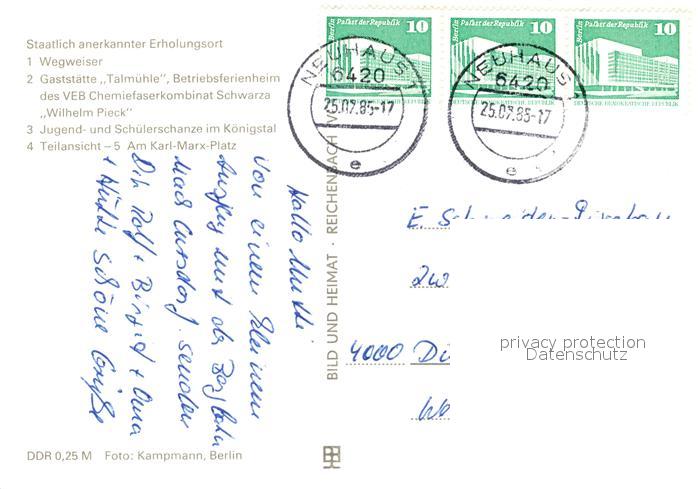 Staatlich anerkannter Erholungsort
1 Wegweiser
2 Gaststätte „Talmühle", Betriebsferienheim
des VEB Chemiefaserkombinat Schwarza
„Wilhelm Pieck"
3 Jugend- und Schülerschanze im Königstal
4 Teilansicht – 5 Am Karl-Marx-Platz
Hallo Mutti
Von einem kleinen
Ausflug mit der Bergbahn
nach Cursdorf senden
Dir Rolf + Birgit + Oma
+ schöne Grüße
DDR 0,25 M Foto: Kampmann, Berlin
BILD UND HEIMAT · REICHENBACH
Berlin Palast der Republik 10
DEUTSCHE DEMOKRATISCHE REPUBLIK
Berlin Palast der Republik 10
DEUTSCHE DEMOKRATISCHE REPUBLIK
Berlin Palast der Republik 10
DEUTSCHE DEMOKRATISCHE REPUBLIK
NEUHAUS 1
6420
25.07.85-17
e
NEUHAUS 1
6420
25.07.85-17
e
E.
4000 Dü
privacy protection
Datenschutz